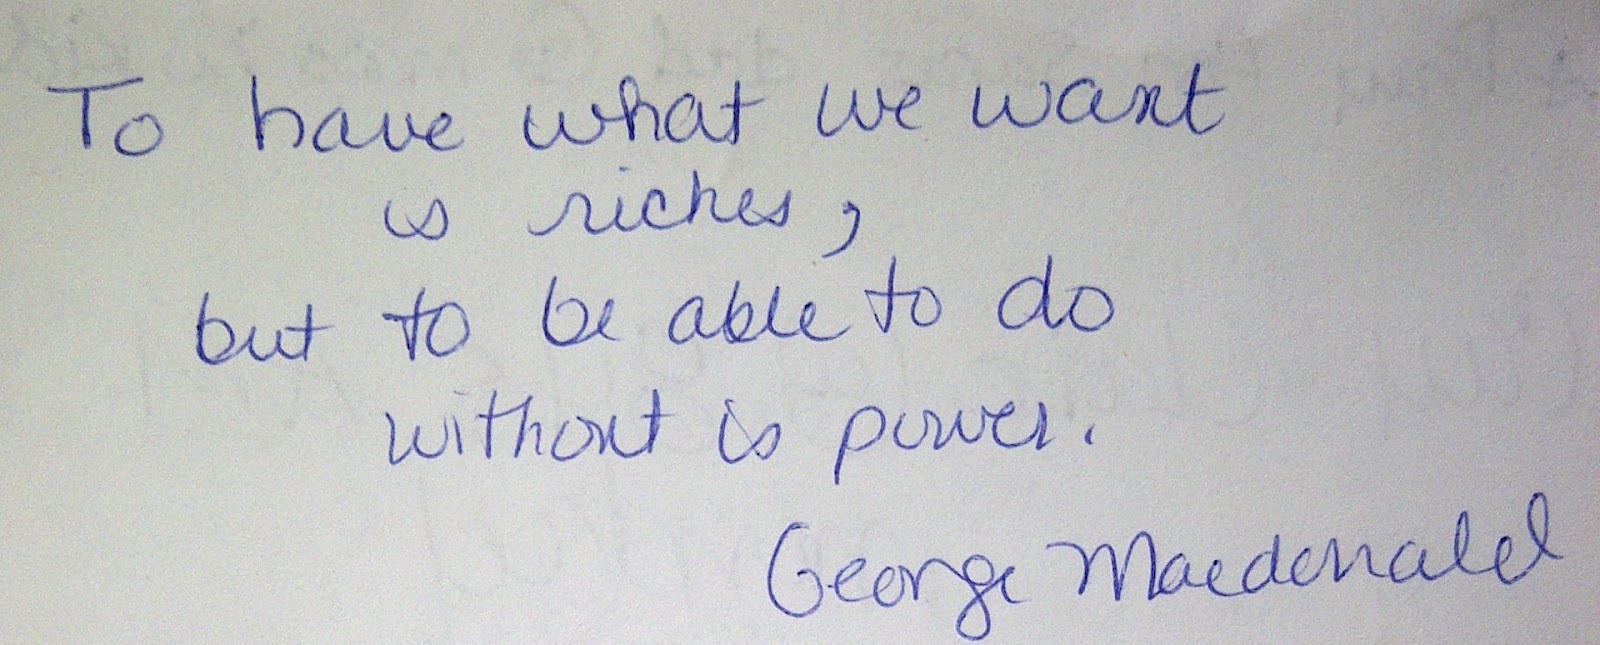 To have what we want
is riches,
but to be able to do
without is power.
George Macdonald